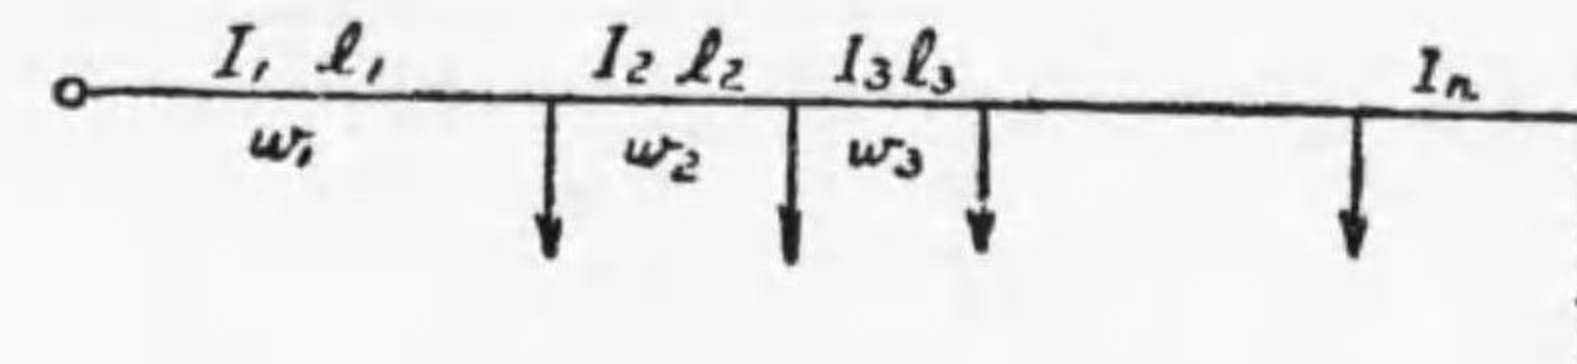 I₁ ℓ₁ I₂ ℓ₂ I₃ ℓ₃ Iₙ
w₁ w₂ w₃